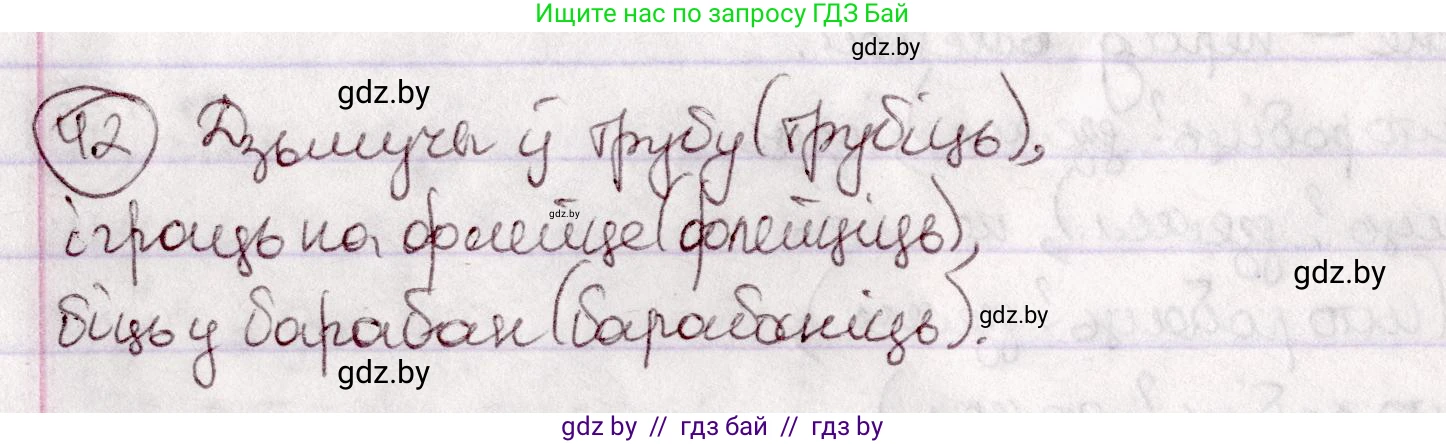 Ищите нас по запросу ГДЗ Бай
gdz.by
gdz.by
42 Дзьмучы ў трубу (трубіць),
іграць на флейце (флейціць),
gdz.by
gdz.by
біць у барабан (барабаніць).
gdz.by
gdz.by
gdz by // гдз бай // гдз by